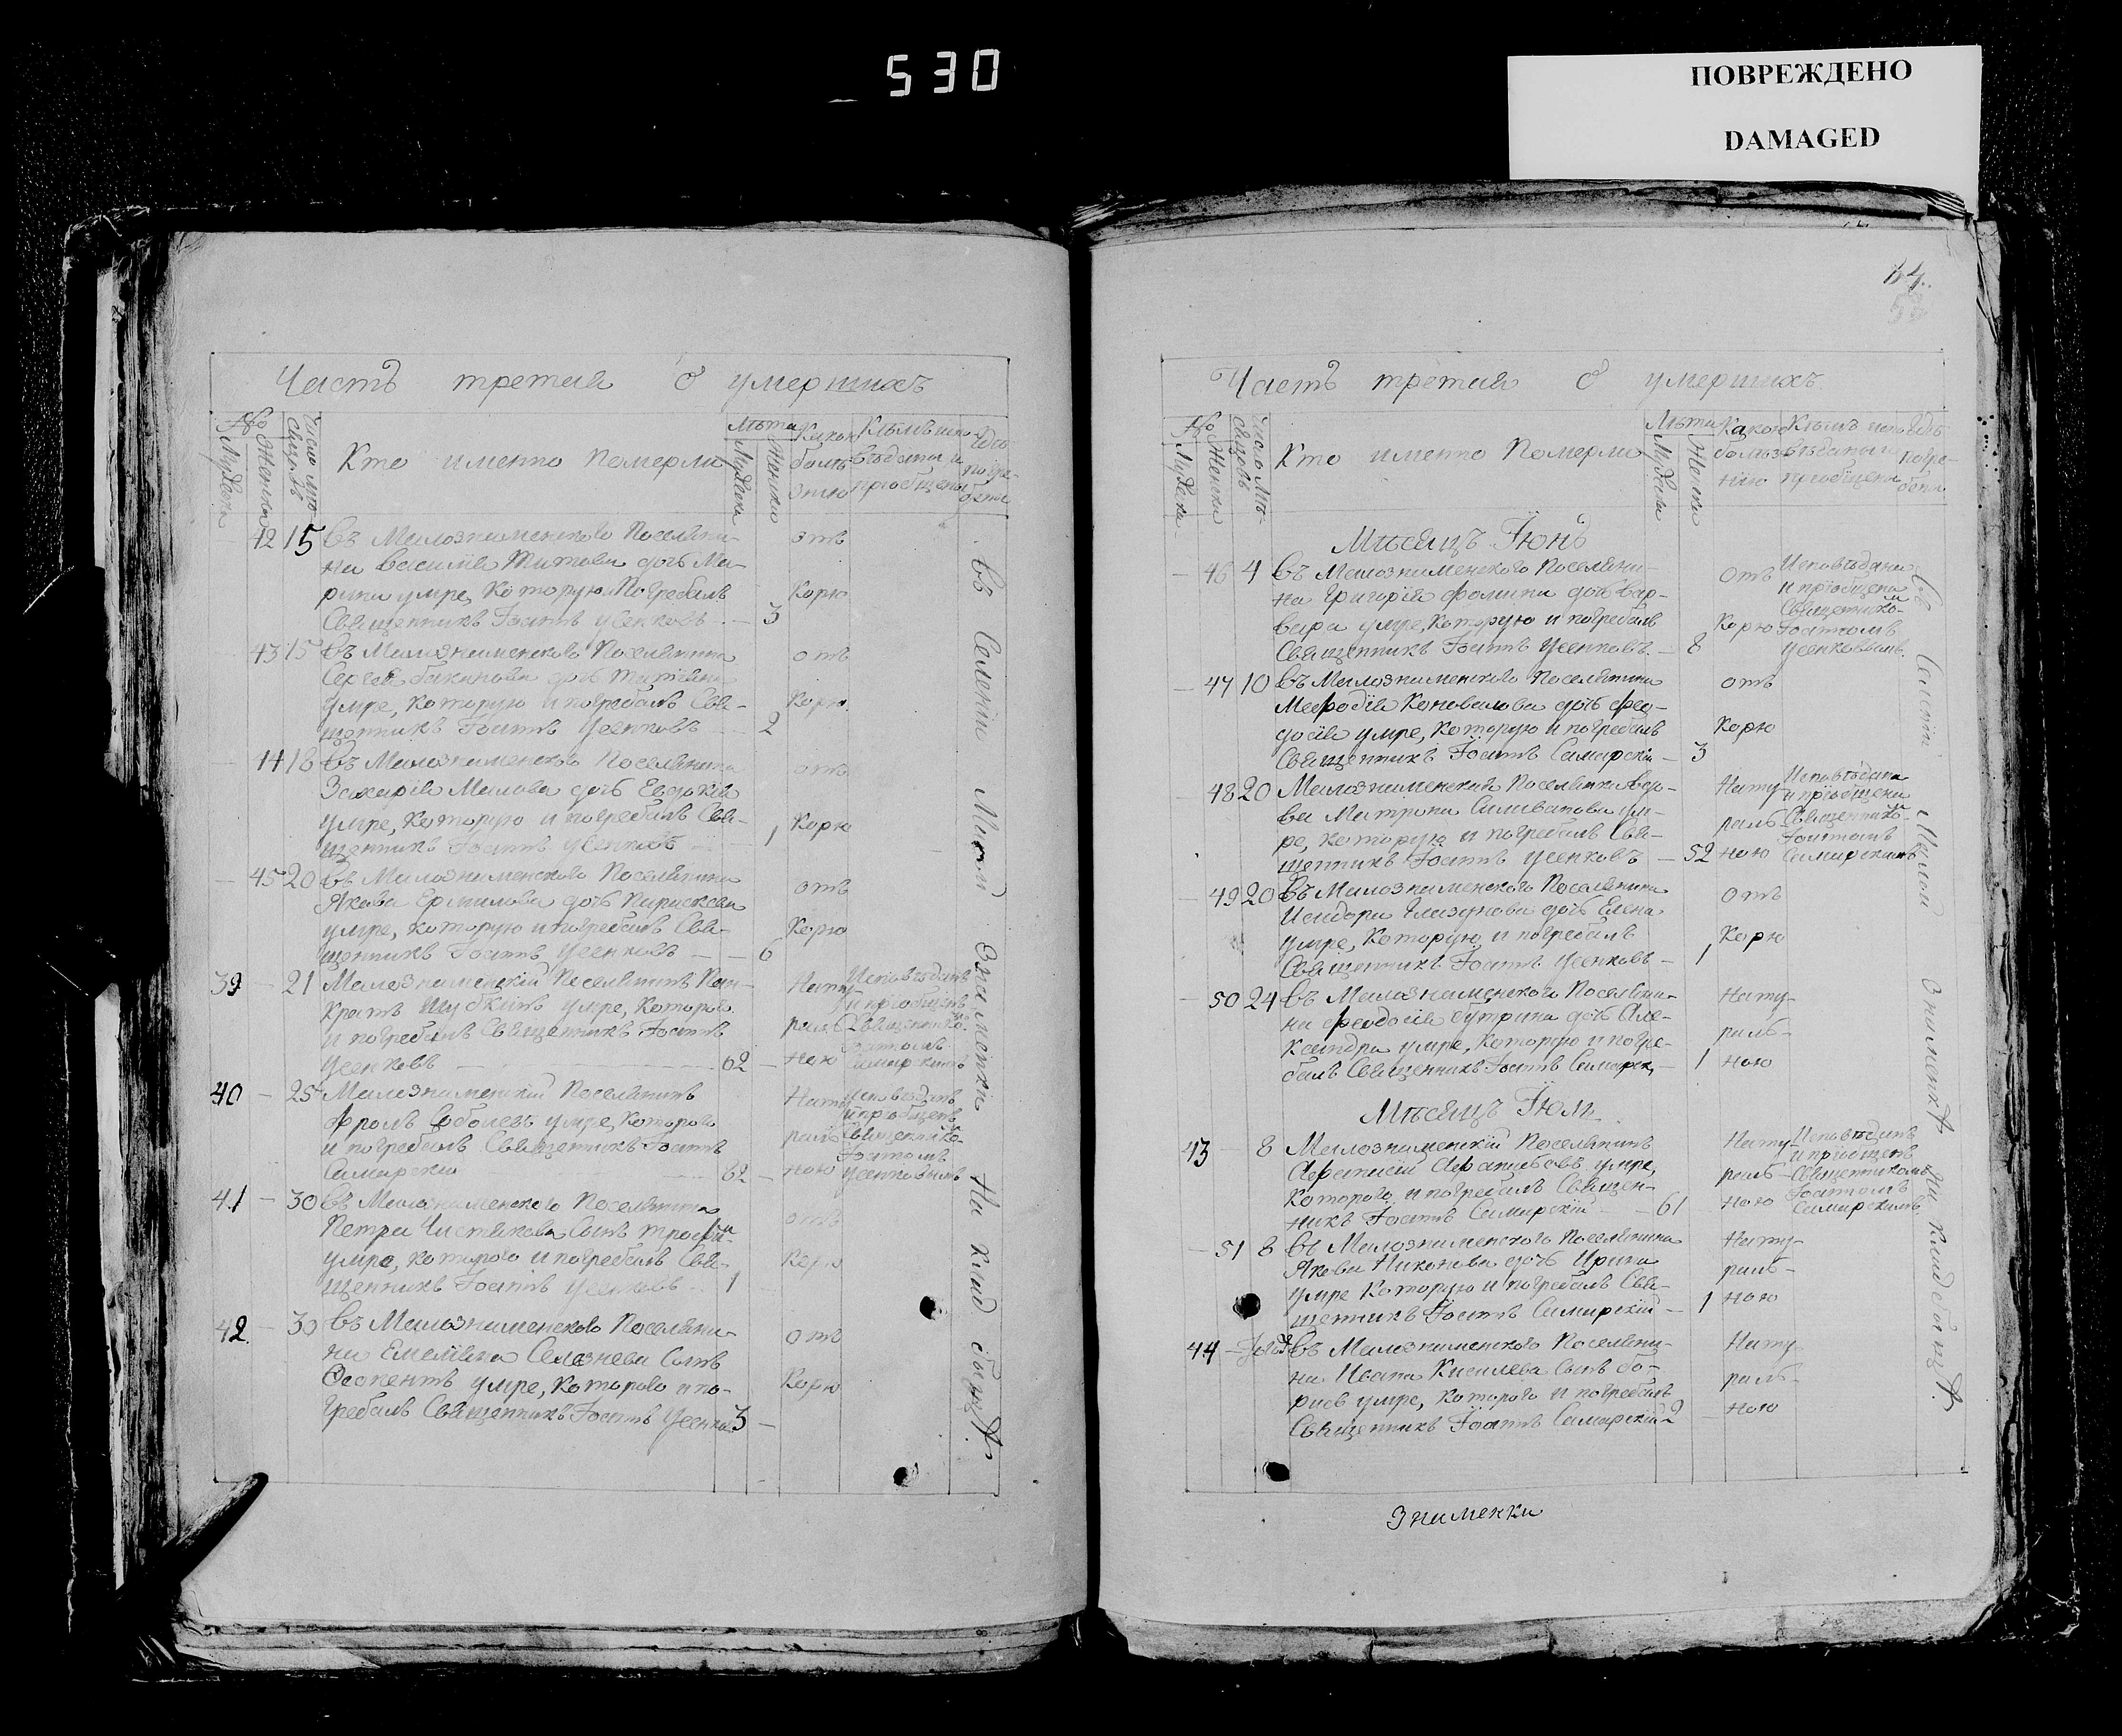 530
ПОВРЕЖДЕНО
DAMAGED
Часть третия о умершихъ
№
Мужеска
Женска
Число мѣсяцовъ
Кто именно Померли
Лѣта
Мужеска
Женска
Какою болѣзнію
Кѣмъ исповѣданы и пріобщены
Гдѣ погребены
42 15 Въ Малознаменского Поселяни-
на Василія Титова дочь Ма-
рина умре, Которую Погребалъ
Священникъ Іоаннъ Усенковъ — 3
отъ
Корю
43 15 Въ Малознаменского Поселянина
Сергея дочь Татіана
умре, которую и погребалъ Свя-
щенникъ Іоаннъ Усенковъ 2
отъ
Корю
44 18 Въ Малознаменского Поселянина
Захарія Малова дочь Евдокія
умре, которую и погребалъ Свя-
щенникъ Іоаннъ Усенковъ 1
отъ
Корю
— 45 20 Въ Малознаменского Поселянина
Якова Ермилова дочь Параскева
умре, которую и погребалъ Свя-
щенникъ Іоаннъ Усенковъ — 6
отъ
Корю
39 — 21 Малознаменскій Поселянинъ Пан-
кратъ Шубкинъ умре, которого
и погребалъ Священникъ Іоаннъ
Усенковъ 62 —
Нату-
раль-
ною
Исповѣданъ
и пріобщенъ
Священнико-
мъ
Іоанномъ
Самарскимъ
40 — 25 Малознаменскій Поселянинъ
Фролъ Соболевъ умре, которого
и погребалъ Священникъ Іоаннъ
Самарскій 62 —
Нату
раль
ною
Исповѣданъ
и пріобщенъ
Священнико-
мъ
Іоанномъ
Усенковымъ
41 — 30 Въ Малознаменского Поселянина
Петра Чистякова Сынъ Трофи-
умре, которого и погребалъ Свя-
щенникъ Іоаннъ Усенковъ 1
отъ
Корю
42 — 30 Въ Малознаменского Поселяни-
на Емеліяна Селезнева Сынъ
умре, Которого и по-
гребалъ Священникъ Іоаннъ Усенков 3 —
отъ
Корю
Въ Селеніи Малой Знаменки На кладбищѣ
54.
Часть третия о умершихъ
№
Мужеска
Женска
Число мѣсяцовъ
Кто именно Померли
Лѣта
Мужеска
Женска
Какою болѣзнію
Кѣмъ исповѣданы и пріобщены
Гдѣ погребены
Мѣсяцъ Іюнь
— 46 4 Въ Малознаменского Поселяни-
на Григорія Фомина дочь Вар-
вара умре, Которую и погребалъ
Священникъ Іоаннъ Усенковъ — 8
отъ
Корю
Исповѣдана
и пріобщена
Священнико-
мъ
Іоанномъ
Усенковымъ.
— 47 10 Въ Малознаменского Поселянина
Мефодія Коновалова дочь Фео-
досія умре, Которую и погребалъ
Священникъ Іоаннъ Самарскій — 3
отъ
Корю
— 48 20 Малознаменская Поселянка Вдо-
ва Матрона Силиванова ум-
ре, которую и погребалъ Свя-
щенникъ Іоаннъ Усенковъ — 52
Нату-
раль-
ною
Исповѣдана
и пріобщена
Священнико-
мъ
Іоанномъ
Самарскимъ
— 49 20 Въ Малознаменского Поселянина
Исидора Глазунова дочь Елена
умре, Которую и погребалъ
Священникъ Іоаннъ Усенковъ — 1
отъ
Корю
— 50 24 Въ Малознаменского Поселяни-
на Феодосія Бутрина дочь Але-
ксандра умре, которую и погре-
балъ Священникъ Іоаннъ Самарск. — 1
Нату-
раль-
ною
Мѣсяцъ Іюль
43 — 8 Малознаменскій Поселянинъ
Афанасій умре,
Которого и погребалъ Священ-
никъ Іоаннъ Самарскій — 61
Нату-
раль-
ною
Исповѣданъ
и пріобщенъ
Священникомъ
Іоанномъ
Самарскимъ
— 51 8 Въ Малознаменского Поселянина
Якова Никонова дочь Ирина
умре Которую и погребалъ Свя-
щенникъ Іоаннъ Самарскій — 1
Нату-
раль-
ною
44 — Въ Малознаменского Поселяни-
на Ивана Киселева Сынъ Бо-
рисъ умре, Которого и погребалъ
Священникъ Іоаннъ Самарскій 2
Нату
раль-
ною
Въ Селеніи Малой Знаменкѣ На кладбищѣ
Знаменки